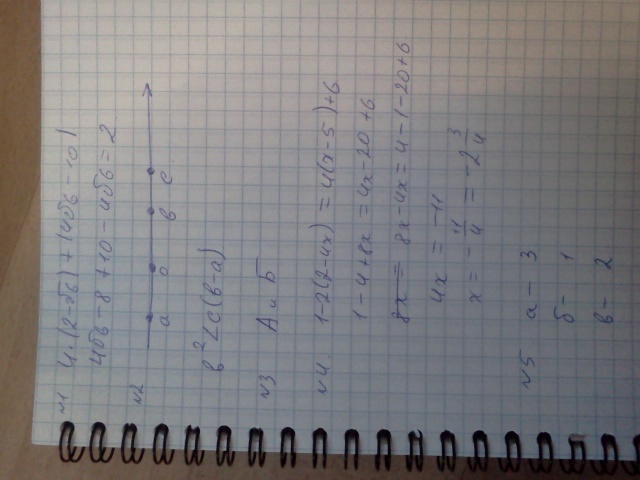 №1 4·|2-√6| + |4√6-10|
4√6-8+10-4√6=2
№2
a o в c
в²<c(в-a)
№3 А и Б
№4. 1-2(2-4x)=4(x-5)+6
1-4+8x=4x-20+6
8x= 8x-4x=4-1-20+6
4x=-11
x=-11/4=-2 3/4
№5 а-3
б-1
в-2